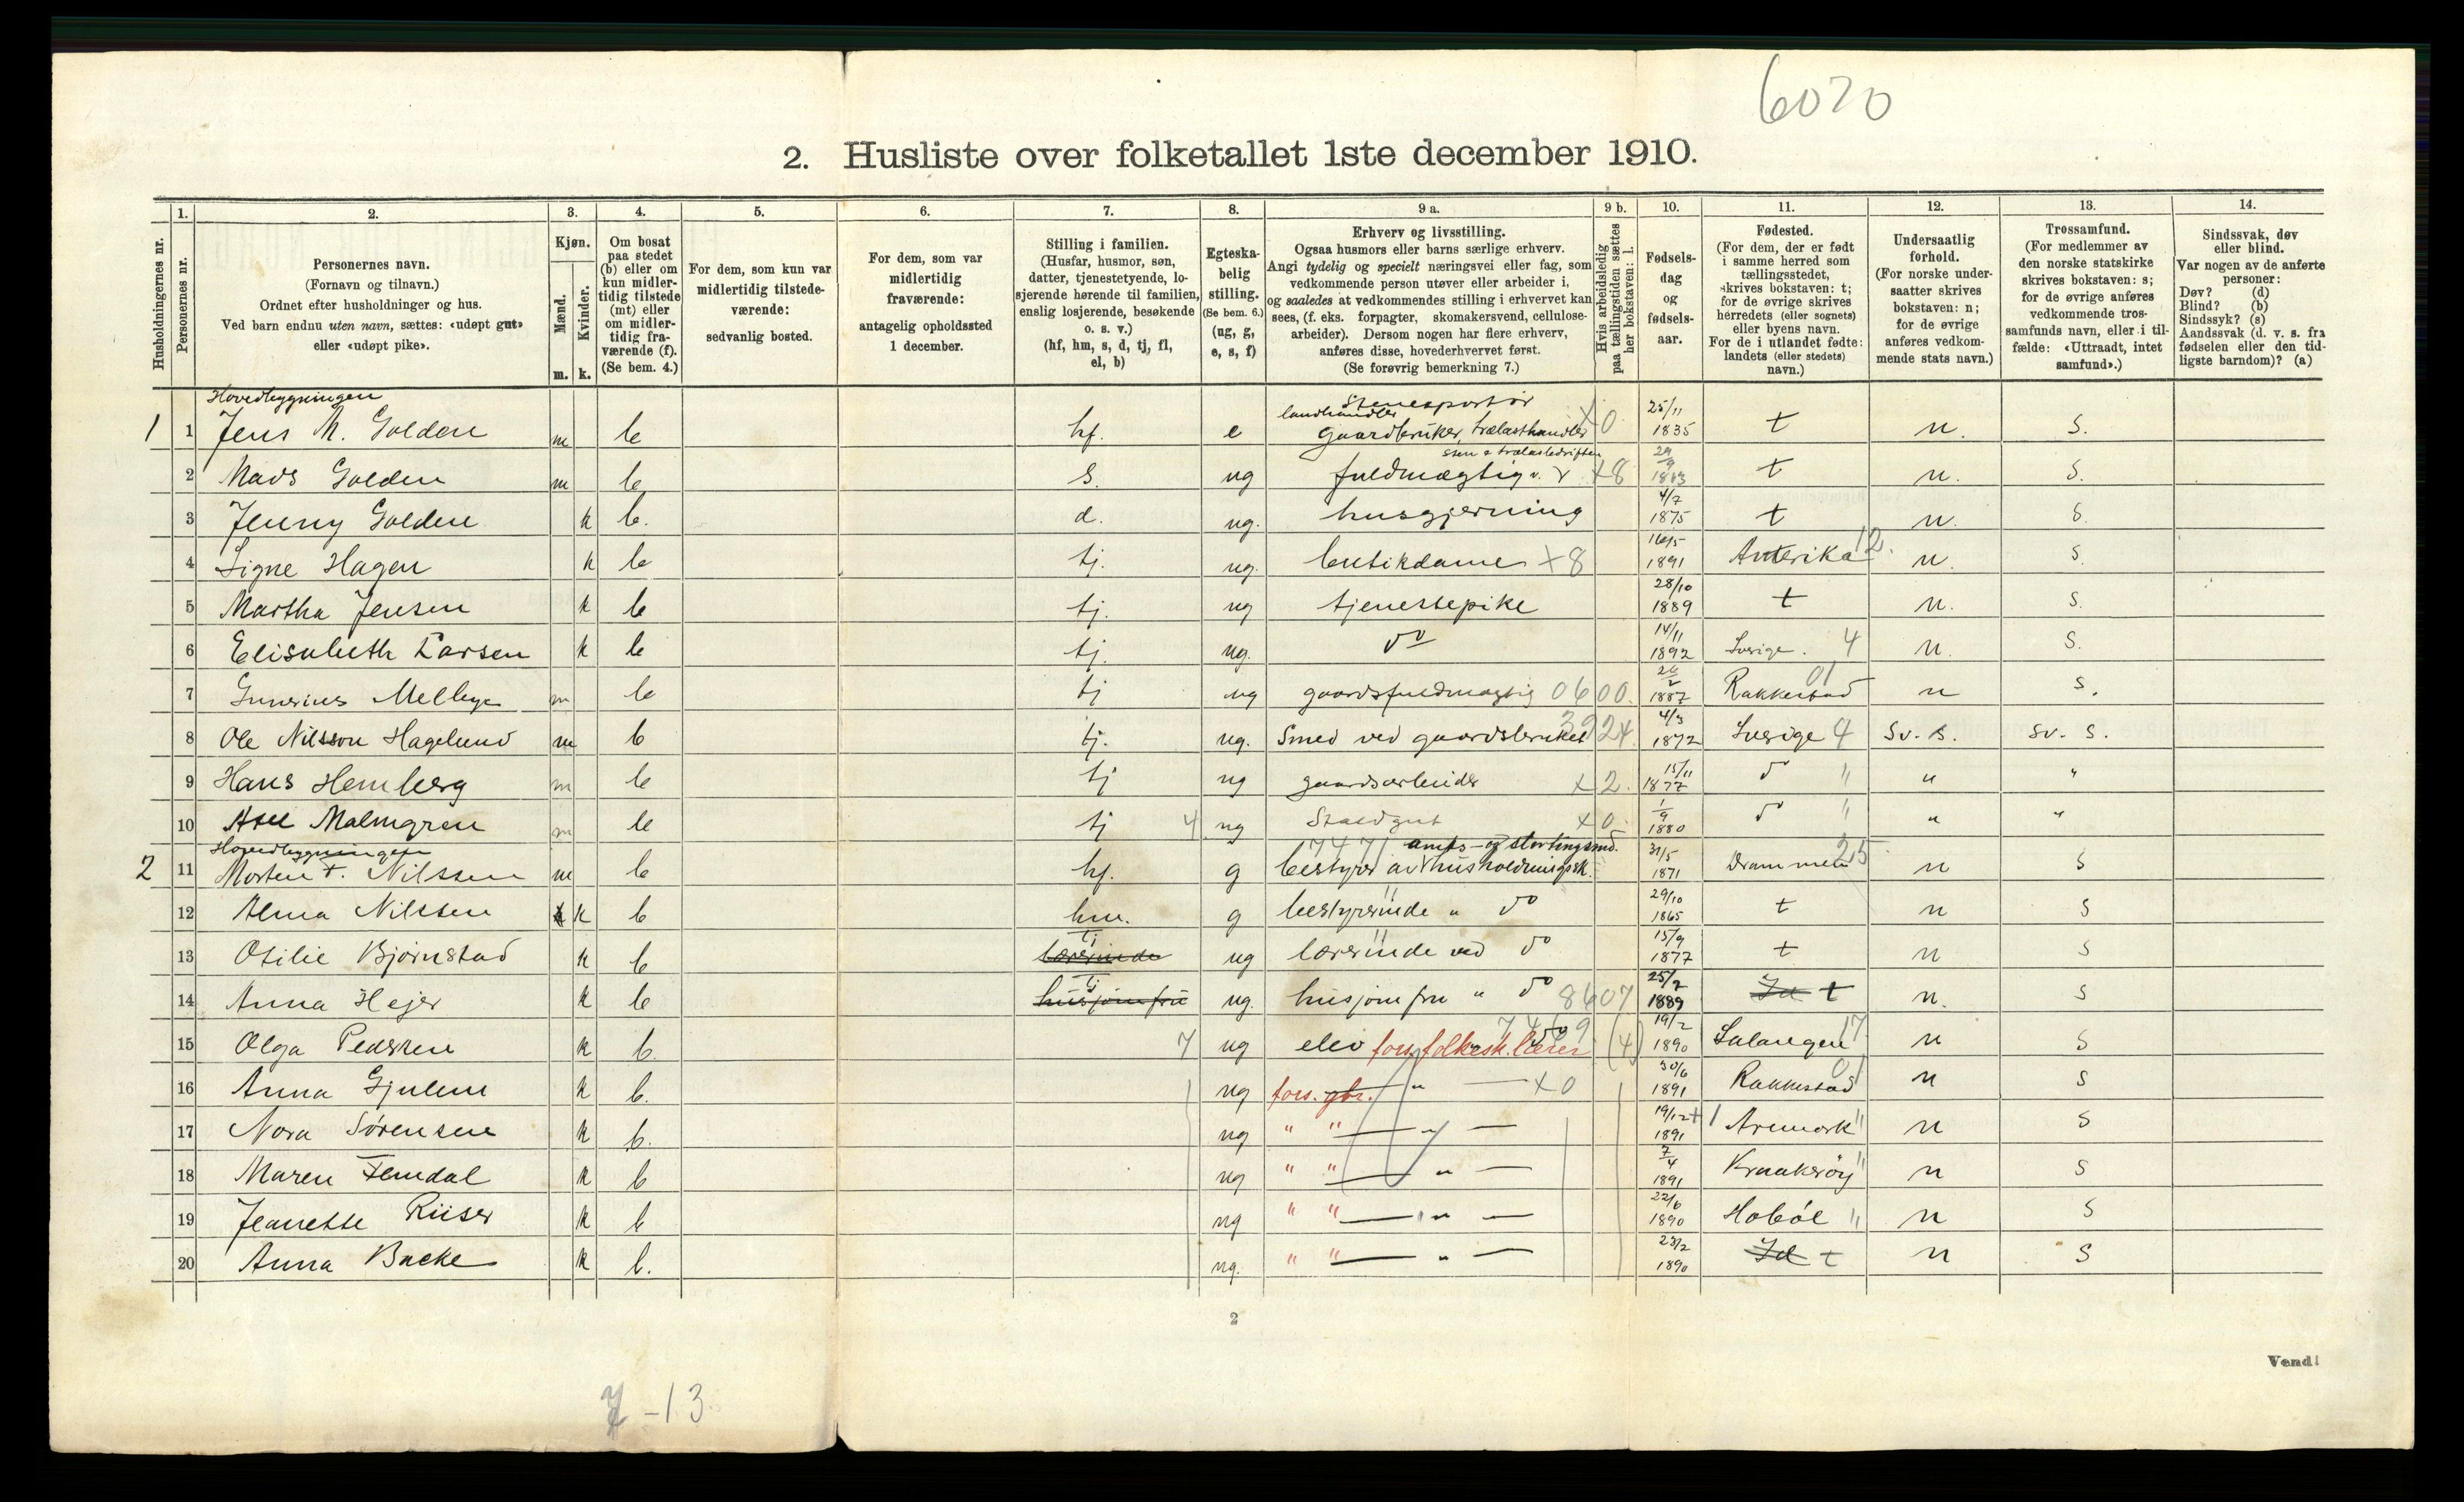 6020
2. Husliste over folketallet 1ste december 1910.
Husholdningernes nr.
1.
Personernes nr.
2.
Personernes navn.
(Fornavn og tilnavn.)
Ordnet efter husholdninger og hus.
Ved barn endnu uten navn, sættes: «udøpt gut»
eller «udøpt pike».
3.
Kjøn.
Mænd.
Kvinder.
m. k.
4.
Om bosat
paa stedet
(b) eller om
kun midler-
tidig tilstede
(mt) eller
om midler-
tidig fra-
værende (f).
(Se bem. 4.)
5.
For dem, som kun var
midlertidig tilstede-
værende:
sedvanlig bosted.
6.
For dem, som var
midlertidig
fraværende:
antagelig opholdssted
1 december.
7.
Stilling i familien.
(Husfar, husmor, søn,
datter, tjenestetyende, lo-
sjerende hørende til familien,
enslig losjerende, besøkende
o. s. v.)
(hf, hm, s, d, tj, fl,
el, b)
8.
Egteska-
belig
stilling.
(Se bem. 6.)
(ug, g,
e, s, f)
9 a.
Erhverv og livsstilling.
Ogsaa husmors eller barns særlige erhverv.
Angi tydelig og specielt næringsvei eller fag, som
vedkommende person utøver eller arbeider i,
og saaledes at vedkommendes stilling i erhvervet kan
sees, (f. eks. forpagter, skomakersvend, cellulose-
arbeider). Dersom nogen har flere erhverv,
anføres disse, hovederhvervet først.
(Se forøvrig bemerkning 7.)
9 b.
Hvis arbeidsledig
paa tællingstiden sættes
her bokstaven: l.
10.
Fødsels-
dag
og
fødsels-
aar.
11.
Fødested.
(For dem, der er født
i samme herred som
tællingsstedet,
skrives bokstaven: t;
for de øvrige skrives
herredets (eller sognets)
eller byens navn.
For de i utlandet fødte:
landets (eller stedets)
navn.)
12.
Undersaatlig
forhold.
(For norske under-
saatter skrives
bokstaven: n;
for de øvrige
anføres vedkom-
mende stats navn.)
13.
Trossamfund.
(For medlemmer av
den norske statskirke
skrives bokstaven: s;
for de øvrige anføres
vedkommende tros-
samfunds navn, eller i til-
fælde: «Uttraadt, intet
samfund».)
14.
Sindssvak, døv
eller blind.
Var nogen av de anførte
personer:
Døv? (d)
Blind? (b)
Sindssyk? (s)
Aandssvak (d. v. s. fra
fødselen eller den tid-
ligste barndom)? (a)
Hovedbygningen
1 1 Jens M. Golden m b hf. e Stenexportør landhandler gaardbruker, trælasthandler x 0 25/11 1835 t n. s.
2 Mads Golden m b s. ug fuldmægtig v. sten & trælastdriften x 8 29/9 1883 t n. s.
3 Jenny Golden k b. d. ug. husgjerning 4/7 1875 t n. s.
4 Signe Hagen k b tj. ug. butikdame x 8 16/5 1891 Amerika 12. n. s.
5 Martha Jensen k b tj. ug tjenestepike 28/10 1889 t n. s.
6 Elisabeth Larsen k b tj. ug. do 14/11 1892 Sverige. 4 n. s.
7 Gunerius Mellbye m b tj ug gaardsfuldmægtig 0600. 26/2 1887 Rakkestad 01 n s.
8 Ole Nilsson Hagelund m b tj. ug. Smed ved gaardsbruket 3924. 4/3 1872 Sverige 4 Sv. s. Sv. s.
9 Hans Hemberg m b tj ug gaardsarbeider x 2. 15/11 1877 do " " "
10 Axel Malmgren m b tj 4 ug Staldgut x 0. 1/9 1880 do " " "
Hovedbygningen
2 11 Morten T. Nilssen m b hf. g 7471 amts- og stortingsmd. bestyrer av husholdningssk. 31/5 1871 Drammen 25 n s
12 Alma Nilssen k b hm. g bestyrerinde " do 29/10 1865 t n s
13 Otilie Bjørnstad k b lærerinde tj ug lærerinde ved do 15/9 1877 t n s
14 Anna Hejer k b husjomfru tj ug. husjomfru " do 8607 25/7 1889 Id t n. s
15 Olga Pedersen k b. 7 ug elev fors. folkesk. lærer (4) 19/2 1890 Salangen 17 n s
16 Anna Gjulem k b. ug fors. gbr. " — x 0 30/6 1891 Rakkestad 01 n s
17 Nora Sørensen k b. ug " " — " — 19/12 1891 Aremark " n s
18 Maren Femdal k b ug " " — " — 7/4 1891 Kraakerøy " n s
19 Jeanette Riiser k b ug " " — " — 22/6 1890 Hobøl " n s
20 Anna Backe k b. ug. " " — " — 23/2 1890 Id t n s
2
Vend!
7-13